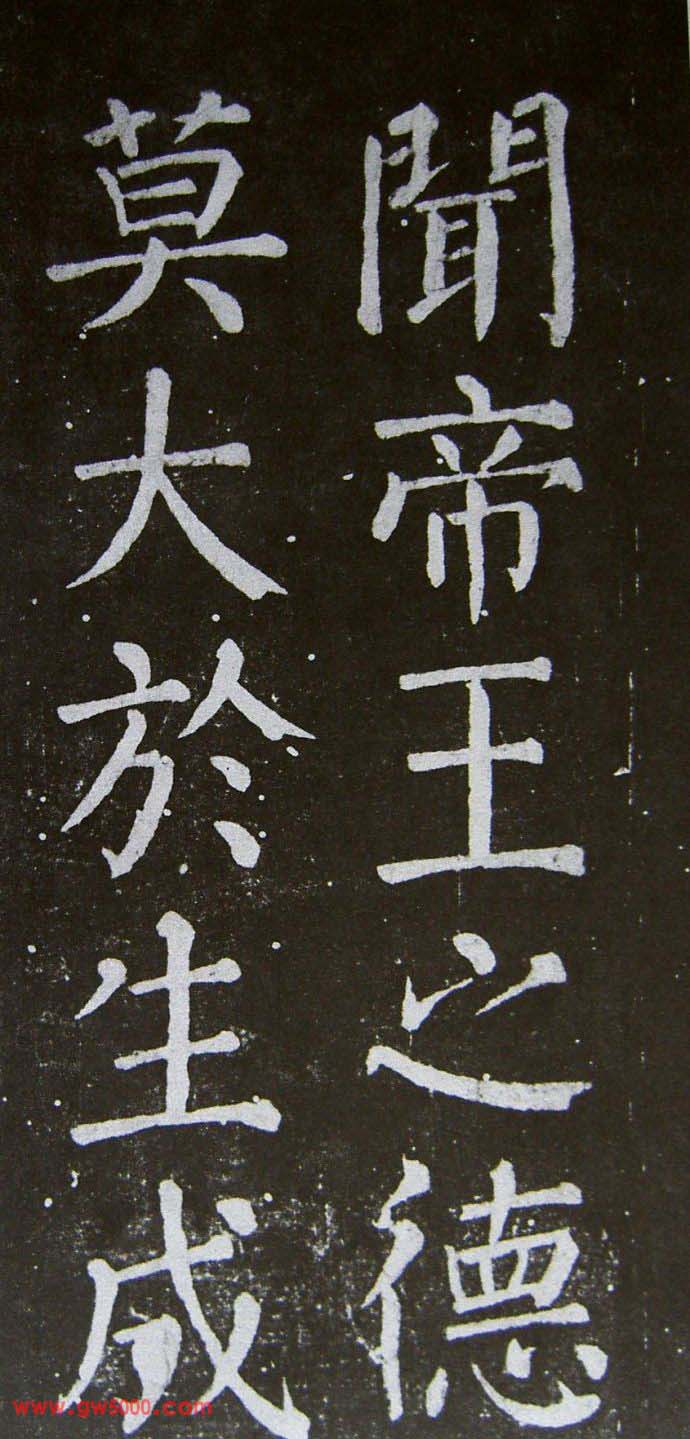 聞帝王之德
莫大於生成
www.gw5000.com